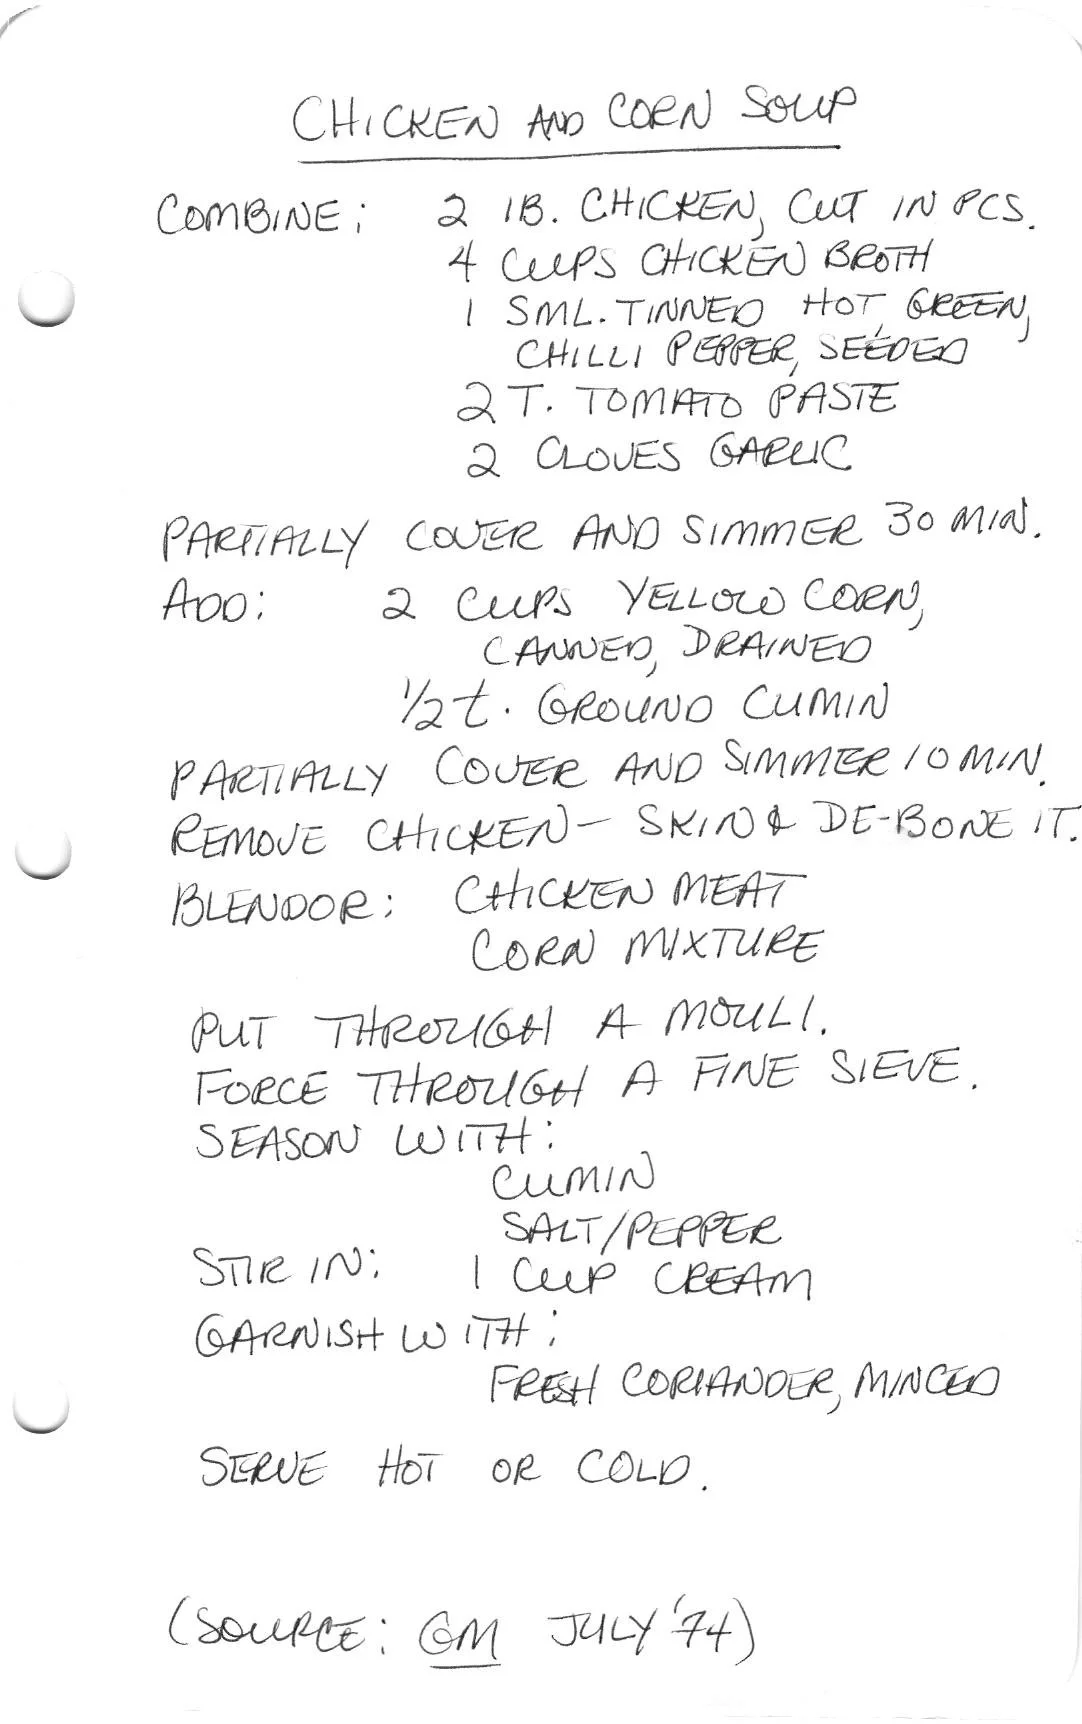 CHICKEN AND CORN SOUP
COMBINE: 2 lB. CHICKEN, CUT IN PCS.
4 CUPS CHICKEN BROTH
1 SML. TINNED HOT, GREEN,
CHILLI PEPPER, SEEDED
2 T. TOMATO PASTE
2 CLOVES GARLIC
PARTIALLY COVER AND SIMMER 30 MIN.
ADD: 2 CUPS YELLOW CORN,
CANNED, DRAINED
1/2 t. GROUND CUMIN
PARTIALLY COVER AND SIMMER 10 MIN.
REMOVE CHICKEN - SKIN & DE-BONE IT.
BLENDOR: CHICKEN MEAT
CORN MIXTURE
PUT THROUGH A MOULI.
FORCE THROUGH A FINE SIEVE.
SEASON WITH:
CUMIN
SALT/PEPPER
STIR IN: 1 CUP CREAM
GARNISH WITH:
FRESH CORIANDER, MINCED
SERVE HOT OR COLD.
(SOURCE: GM JULY '74)